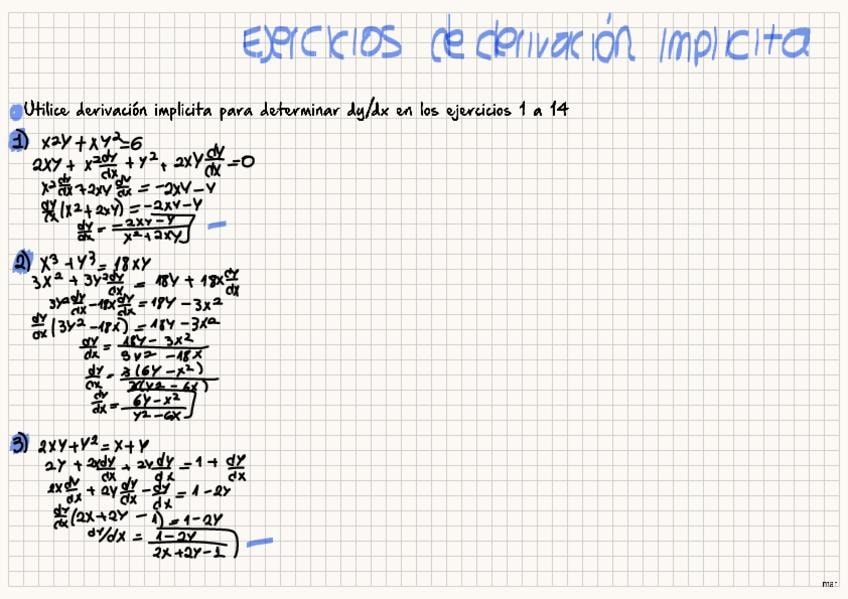 Ejercicios de derivación implicita
Utilice derivación implicita para determinar dy/dx en los ejercicios 1 a 14
1) x2y + xy²=6
2xy + x² dy/dx + y² + 2xy dy/dx =0
x² dy/dx + 2xy dy/dx = -2xy - y
dy/dx (x² + 2xy) = -2xy - y
dy/dx = -2xy - y / x² + 2xy
2) x³ + y³ = 18xy
3x² + 3y² dy/dx = 18y + 18x dy/dx
3y² dy/dx - 18x dy/dx = 18y - 3x²
dy/dx (3y² - 18x) = 18y - 3x²
dy/dx = 18y - 3x² / 3y² - 18x
dy/dx = 3(6y - x²) / 3(y² - 6x)
dy/dx = 6y - x² / y² - 6x
3) 2xy + y² = x + y
2y + 2x dy/dx + 2y dy/dx = 1 + dy/dx
2x dy/dx + 2y dy/dx - dy/dx = 1 - 2y
dy/dx (2x + 2y - 1) = 1 - 2y
dy/dx = 1 - 2y / 2x + 2y - 1
mar